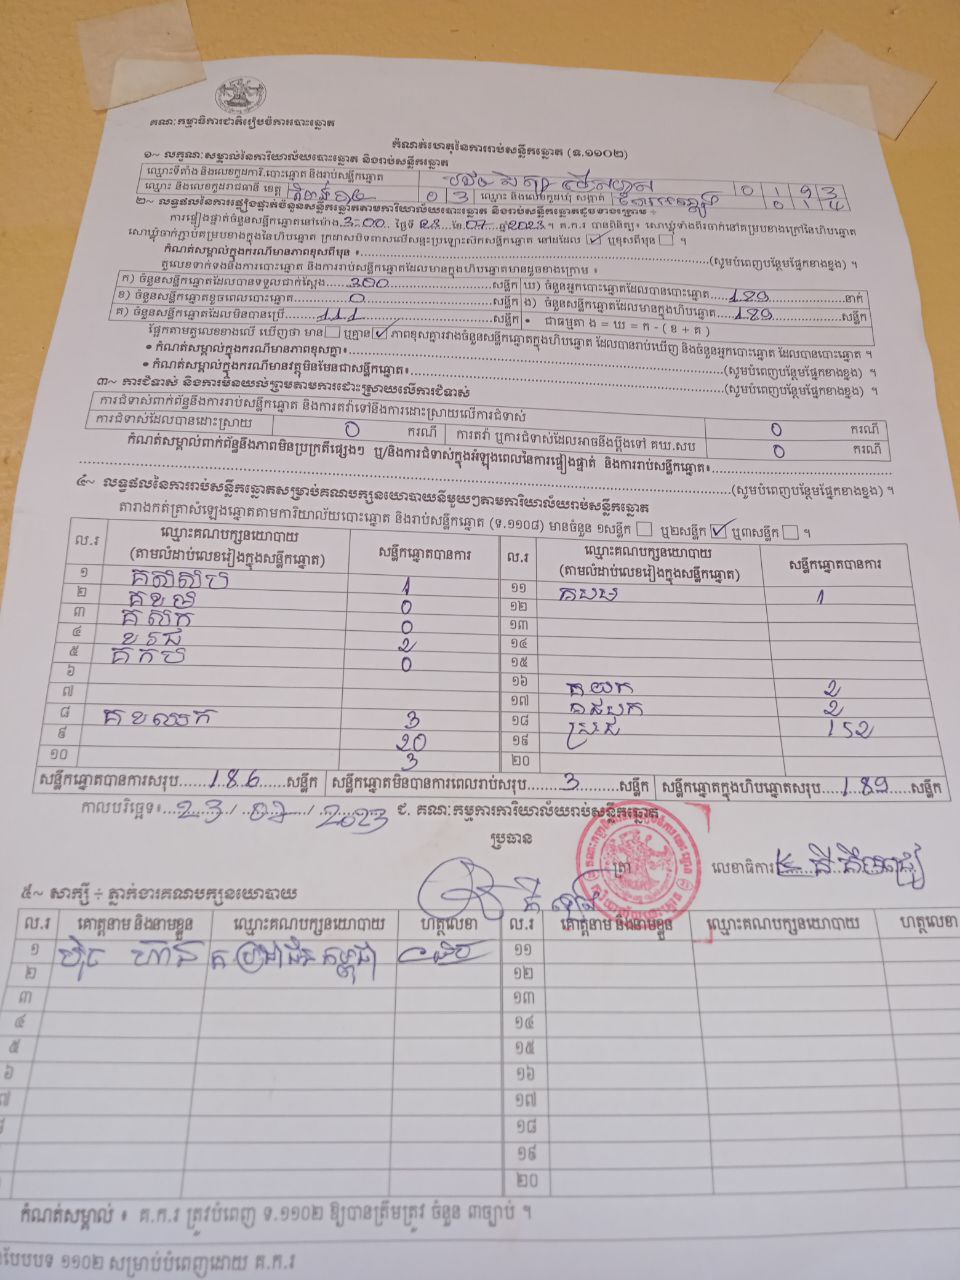 គណៈកម្មាធិការជាតិរៀបចំការបោះឆ្នោត
កំណត់ហេតុនៃការរាប់សន្លឹកឆ្នោត (ទ.១១០២)
១~ លក្ខណៈសម្គាល់នៃការិយាល័យបោះឆ្នោត និងរាប់សន្លឹកឆ្នោត
ឈ្មោះទីតាំង និងលេខកូដការិ.បោះឆ្នោត និងរាប់សន្លឹកឆ្នោត 0 1 9 3
ឈ្មោះ និងលេខកូដរាជធានី ខេត្ត 0 3 ឈ្មោះ និងលេខកូដឃុំ សង្កាត់
២~ លទ្ធផលនៃការផ្ទៀងផ្ទាត់ចំនួនសន្លឹកឆ្នោតតាមការិយាល័យបោះឆ្នោត និងរាប់សន្លឹកឆ្នោតដូចខាងក្រោម ÷
ការផ្ទៀងផ្ទាត់ចំនួនសន្លឹកឆ្នោតនៅម៉ោង 3:00 ថ្ងៃទី 23 ខែ 07 ឆ្នាំ 2023 ។ គ.ក.រ បានពិនិត្យ
កំណត់សម្គាល់ក្នុងករណីមានភាពខុសពីមុន ៖ (សូមបំពេញបន្ថែមផ្នែកខាងខ្នង) ។
តួលេខទាក់ទងនឹងការបោះឆ្នោត និងការរាប់សន្លឹកឆ្នោតដែលមានក្នុងហិបឆ្នោតមានដូចខាងក្រោម ៖
ក) ចំនួនសន្លឹកឆ្នោតដែលបានទទួលជាក់ស្តែង 300 សន្លឹក ឃ) ចំនួនអ្នកបោះឆ្នោតដែលបានបោះឆ្នោត 189 នាក់
ខ) ចំនួនសន្លឹកឆ្នោតខូចពេលបោះឆ្នោត 0 សន្លឹក ង) ចំនួនសន្លឹកឆ្នោតដែលមានក្នុងហិបឆ្នោត 189 សន្លឹក
គ) ចំនួនសន្លឹកឆ្នោតដែលមិនបានប្រើ 111 សន្លឹក • ជាធម្មតា ង = ឃ = ក - ( ខ + គ )
ផ្អែកតាមតួលេខខាងលើ ឃើញថា មាន ឬគ្មាន ភាពខុសគ្នារវាងចំនួនសន្លឹកឆ្នោតក្នុងហិបឆ្នោត ដែលបានរាប់ឃើញ និងចំនួនអ្នកបោះឆ្នោត ដែលបានបោះឆ្នោត ។
• កំណត់សម្គាល់ក្នុងករណីមានភាពខុសគ្នា៖ (សូមបំពេញបន្ថែមផ្នែកខាងខ្នង) ។
• កំណត់សម្គាល់ក្នុងករណីមានវត្ថុមិនមែនជាសន្លឹកឆ្នោត៖ (សូមបំពេញបន្ថែមផ្នែកខាងខ្នង) ។
៣~ ការជំទាស់ និងការមិនយល់ព្រមតាមការដោះស្រាយលើការជំទាស់
ការជំទាស់ពាក់ព័ន្ធនឹងការរាប់សន្លឹកឆ្នោត និងការតវ៉ាទៅនឹងការដោះស្រាយលើការជំទាស់ 0 ករណី
ការជំទាស់ដែលបានដោះស្រាយ 0 ករណី ការតវ៉ា ឬការជំទាស់ដែលអាចនឹងប្តឹងទៅ គឃ.សប 0 ករណី
កំណត់សម្គាល់ពាក់ព័ន្ធនឹងភាពមិនប្រក្រតីផ្សេងៗ ឬ/និងការជំទាស់ក្នុងអំឡុងពេលនៃការផ្ទៀងផ្ទាត់ និងការរាប់សន្លឹកឆ្នោត៖
(សូមបំពេញបន្ថែមផ្នែកខាងខ្នង) ។
៤~ លទ្ធផលនៃការរាប់សន្លឹកឆ្នោតសម្រាប់គណបក្សនយោបាយនីមួយៗតាមការិយាល័យរាប់សន្លឹកឆ្នោត
តារាងកត់ត្រាសំឡេងឆ្នោតតាមការិយាល័យបោះឆ្នោត និងរាប់សន្លឹកឆ្នោត (ទ.១១០៨) មានចំនួន ១សន្លឹក ឬ២សន្លឹក ឬ៣សន្លឹក ។
ល.រ ឈ្មោះគណបក្សនយោបាយ (តាមលំដាប់លេខរៀងក្នុងសន្លឹកឆ្នោត) សន្លឹកឆ្នោតបានការ ល.រ ឈ្មោះគណបក្សនយោបាយ (តាមលំដាប់លេខរៀងក្នុងសន្លឹកឆ្នោត) សន្លឹកឆ្នោតបានការ
១ 1 ១១ 1
២ 0 ១២
៣ 0 ១៣
៤ 2 ១៤
៥ 0 ១៥
៦ ១៦ 2
៧ ១៧ 2
៨ 3 ១៨ 152
៩ 20 ១៩
១០ 3 ២០
សន្លឹកឆ្នោតបានការសរុប 186 សន្លឹក សន្លឹកឆ្នោតមិនបានការពេលរាប់សរុប 3 សន្លឹក សន្លឹកឆ្នោតក្នុងហិបឆ្នោតសរុប 189 សន្លឹក
កាលបរិច្ឆេទ៖ 23 / 07 / 2023 ជ. គណៈកម្មការការិយាល័យរាប់សន្លឹកឆ្នោត
ប្រធាន
ត្រា លេខាធិការ
៥~ សាក្សី ÷ ភ្នាក់ងារគណបក្សនយោបាយ
ល.រ គោត្តនាម និងនាមខ្លួន ឈ្មោះគណបក្សនយោបាយ ហត្ថលេខា ល.រ គោត្តនាម និងនាមខ្លួន ឈ្មោះគណបក្សនយោបាយ ហត្ថលេខា
១ ១១
២ ១២
៣ ១៣
៤ ១៤
៥ ១៥
៦ ១៦
៧ ១៧
៨ ១៨
១៩
២០
កំណត់សម្គាល់ ៖ គ.ក.រ ត្រូវបំពេញ ទ.១១០២ ឱ្យបានត្រឹមត្រូវ ចំនួន ៣ច្បាប់ ។
បែបបទ ១១០២ សម្រាប់បំពេញដោយ គ.ក.រ